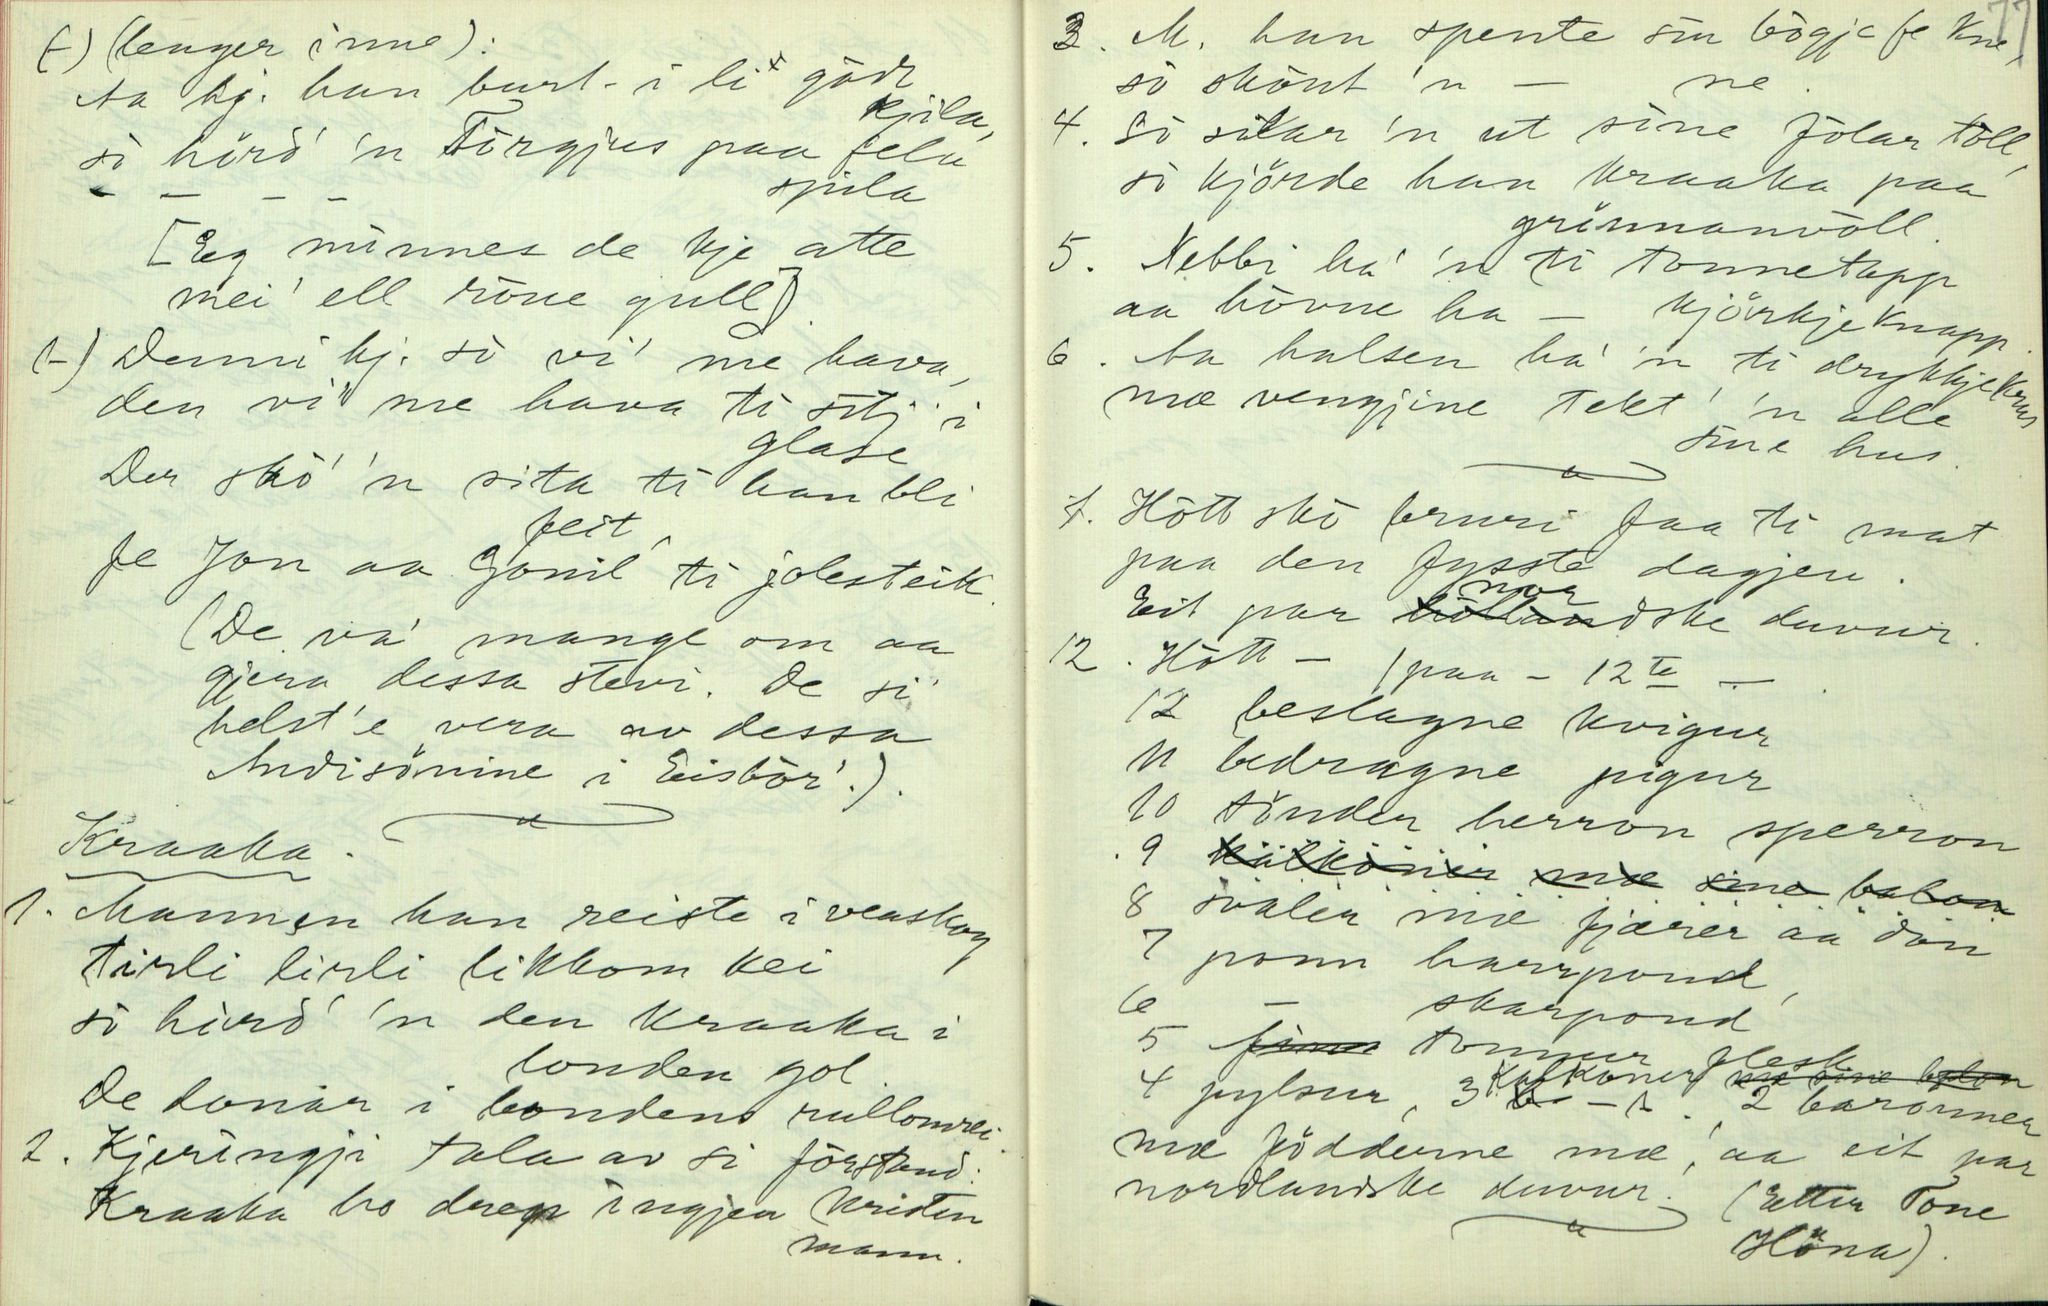 (-) (lenger inne):
Aa kj. han burt- i li x gode
kjila,
so hörd' 'n Torgjus paa fela
- - - - spila
[Eg minnes de kje atte
mei' ell röue gull].
1-) Denni kj. so vi' me hava,
den vi' me hava ti sitj' i
glase
Der sko' 'n sita ti han bli
feit,
fe Jon aa Gonil ti jolesteik.
(De va' mange om aa
gjera dessa stevi. De si
helst 'e vera av dessa
Andisönine i Eisbör'.).
Kraaka.
1. Mannen han reiste i veaskog
tirli lirli likkom kei
so hörd' 'n den kraaka i
londen gol.
De donar i londens rullomrei.
2. Kjeringji tala av si förstand:
Kraaka ho drep ingjen kristen
mann.
77
3. M. han spente sin bögje fe kne,
so skönt 'n - ne.
4. So silar 'n ut sine folar toll,
so kjörde han kraaka paa
grönnanvoll.
5. Nebbi ha' 'n ti tonnetapp
aa hovne ha - kjörkjeknapp.
6. Aa halsen ha' 'n ti drykkjekrus
mæ vengjine tekt' 'n alle
sine hus.
1. Hött sko bruri faa ti mat
paa den fysste dagjen.
nor
Eit par holländske duvur.
12. Hött - / paa - 12te -.
12 beslagne kvigur
11 bedragne pigur
10 tönder herron sperron
9 kalkoner mæ sine balon
8 svaler mæ fjærer aa don
7 ponn harrpond,
6 - skarpond
5 finn tonnur flesk
4 pylsur, 3 kalkoner mæ sine balon
- 1-. 2 baronner
mæ födderne mæ, aa eit par
nordlandske duvur. (Etter Tone
Höna).